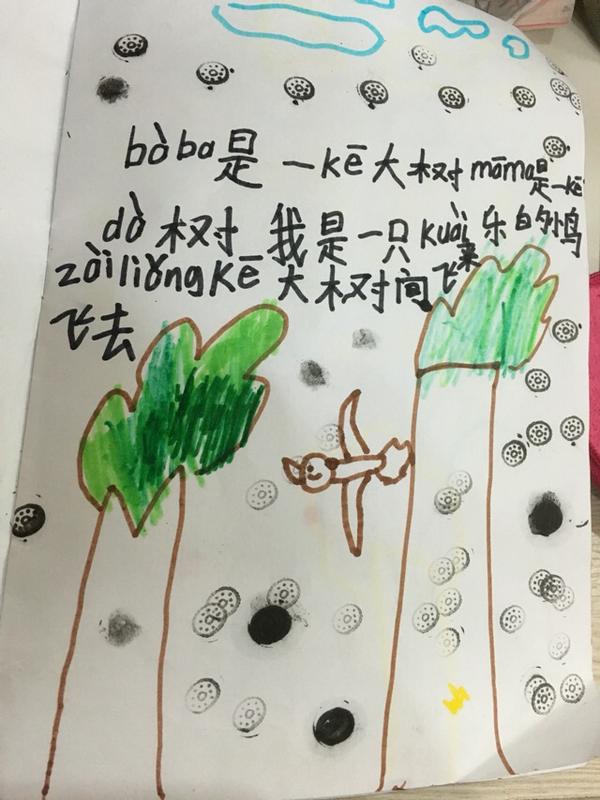 bàba是一kē大树māma是一kē
dà树 我是一只kuài乐的小鸟
zàiliǎngkē大树间飞来
飞去